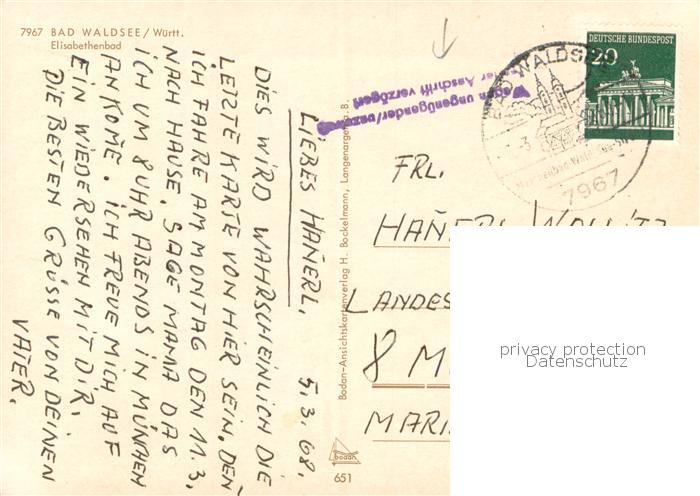 7967 BAD WALDSEE / Württ.
Elisabethenbad
LIEBES HAN̄ERL. 5.3.68.
DIES WIRD WAHRSCHEINLICH DIE
LETZTE KARTE VON HIER SEIN, DEN
ICH FAHRE AM MONTAG DEN 11.3.
NACH HAUSE, SAGE MAMA DAS
ICH UM 8 UHR ABENDS IN MÜNCHEN
ANKOM̄E. ICH FREUE MICH AUF
EIN WIEDERSEHEN MIT DIR.
DIE BESTEN GRÜSSE VON DEINEN
VATER.
Bodan-Ansichtskartenverlag H. Bockelmann, Langenargen a. B.
bodan
651
DEUTSCHE BUNDESPOST
20
BAD WALDSEE
7967
ungenügender
Anschrift verzögert
FRL.
HAN̄ERL
LANDES
8 M
MARI
privacy protection
Datenschutz